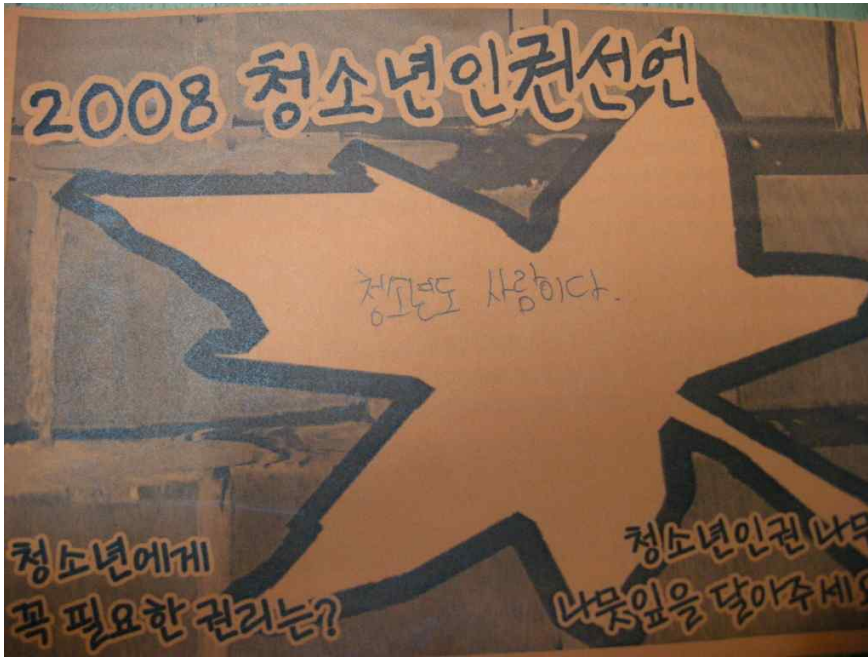 2008 청소년인권선언
청소년도 사람이다.
청소년에게
꼭 필요한 권리는?
청소년인권
나뭇잎을 달아주세요